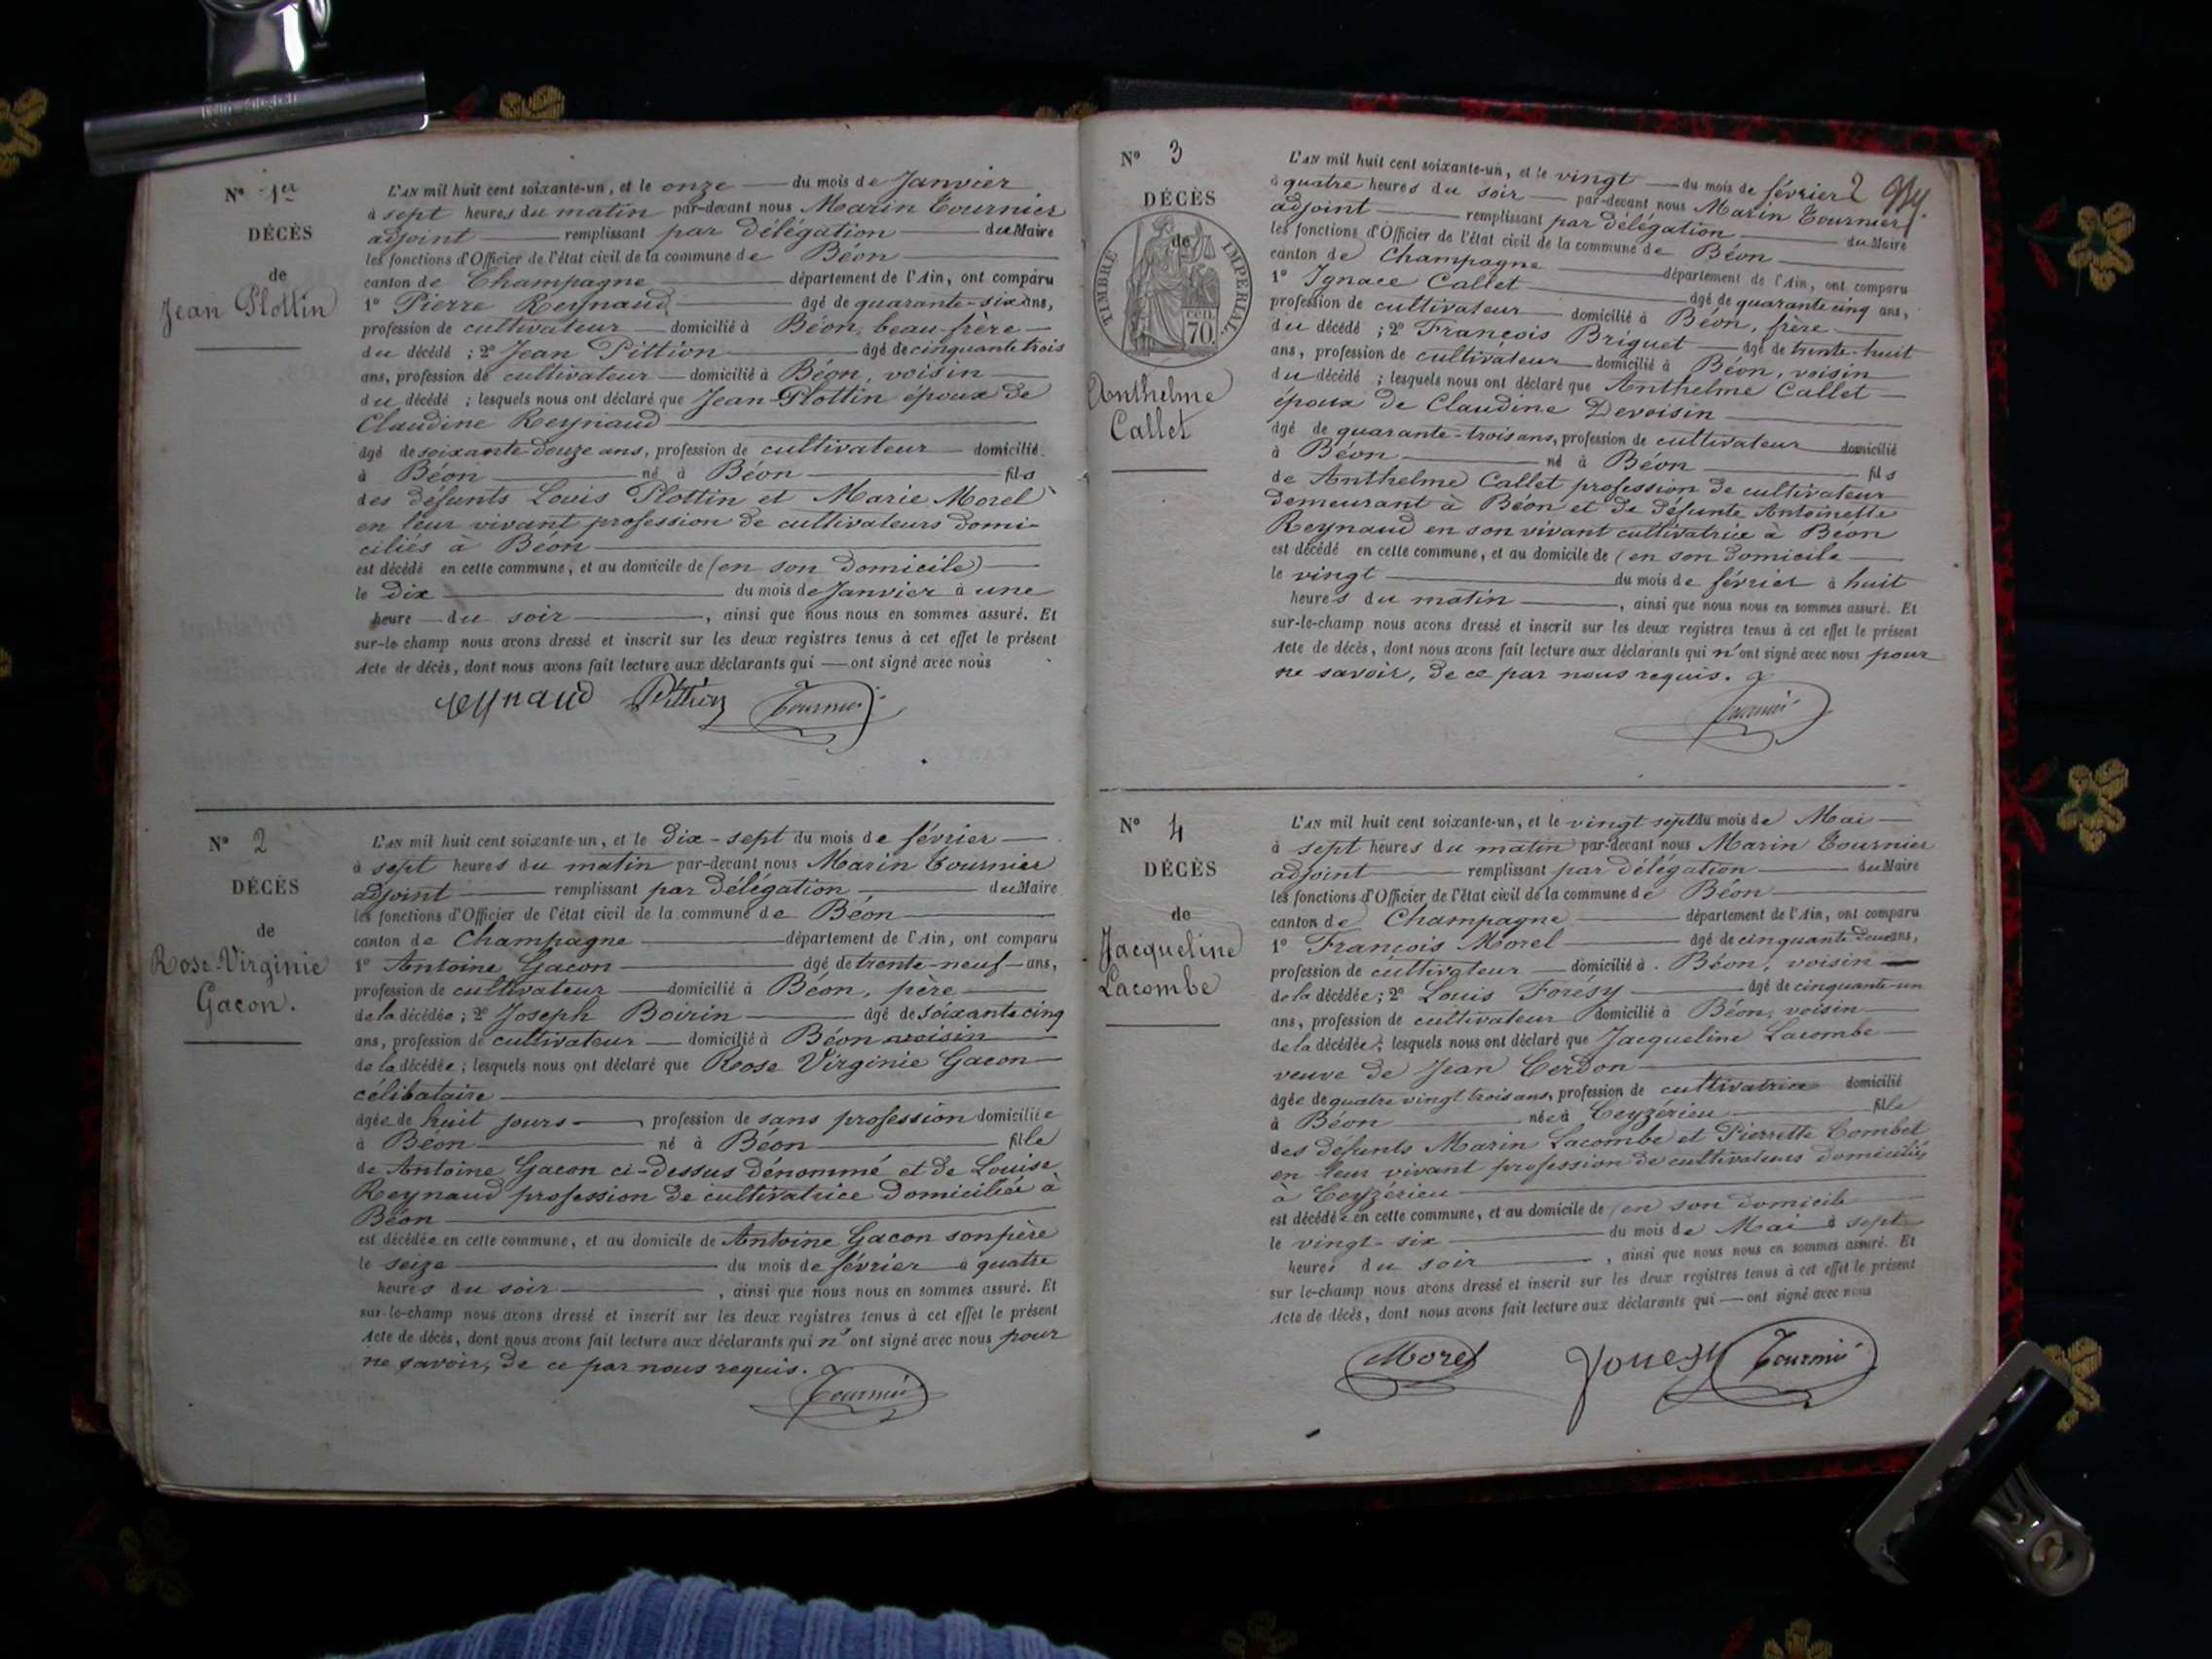 N° 1er
DÉCÈS
de
Jean Plottin
L'AN mil huit cent soixante-un, et le onze du mois de Janvier
à sept heures du matin par-devant nous Marin Tournier
adjoint remplissant par délégation du Maire
les fonctions d'Officier de l'état civil de la commune de Béon
canton de Champagne département de l'Ain, ont comparu
1° Pierre Reynaud âgé de quarante-six ans,
profession de cultivateur domicilié à Béon, beau-frère
du décédé ; 2° Jean Pittion âgé de cinquante trois
ans, profession de cultivateur domicilié à Béon, voisin
du décédé ; lesquels nous ont déclaré que Jean Plottin époux de
Claudine Reynaud
âgé de soixante-douze ans, profession de cultivateur domicilié
à Béon né à Béon fils
des défunts Louis Plottin et Marie Morel
en leur vivant profession de cultivateurs domi-
ciliés à Béon
est décédé en cette commune, et au domicile de (en son domicile)
le dix du mois de Janvier à une
heure du soir , ainsi que nous nous en sommes assuré. Et
sur-le champ nous avons dressé et inscrit sur les deux registres tenus à cet effet le présent
Acte de décès, dont nous avons fait lecture aux déclarants qui ont signé avec nous
reynaud Pittion Tournier
N° 2
DÉCÈS
de
Rose-Virginie
Gacon.
L'AN mil huit cent soixante-un, et le dix-sept du mois de février
à sept heures du matin par-devant nous Marin Tournier
adjoint remplissant par délégation du Maire
les fonctions d'Officier de l'état civil de la commune de Béon
canton de Champagne département de l'Ain, ont comparu
1° Antoine Gacon âgé de trente-neuf ans,
profession de cultivateur domicilié à Béon, père
de la décédée ; 2° Joseph Boirin âgé de soixante cinq
ans, profession de cultivateur domicilié à Béon voisin
de la décédée ; lesquels nous ont déclaré que Rose Virginie Gacon
célibataire
âgée de huit jours profession de sans profession domiciliée
à Béon né à Béon fille
de Antoine Gacon ci-dessus dénommé et de Louise
Reynaud profession de cultivatrice domiciliée à
Béon
est décédée en cette commune, et au domicile de Antoine Gacon son père
le seize du mois de février à quatre
heures du soir , ainsi que nous nous en sommes assuré. Et
sur-le-champ nous avons dressé et inscrit sur les deux registres tenus à cet effet le présent
Acte de décès, dont nous avons fait lecture aux déclarants qui n'ont signé avec nous pour
ne savoir, de ce par nous requis.
Tournier
N° 3
DÉCÈS
de
TIMBRE IMPÉRIAL
70 cen.
Anthelme
Callet
2
L'AN mil huit cent soixante-un, et le vingt du mois de février
à quatre heures du soir par-devant nous Marin Tournier
adjoint remplissant par délégation du Maire
les fonctions d'Officier de l'état civil de la commune de Béon
canton de Champagne département de l'Ain, ont comparu
1° Ignace Callet âgé de quarante cinq ans,
profession de cultivateur domicilié à Béon, frère
du décédé ; 2° François Briguet âgé de trente-huit
ans, profession de cultivateur domicilié à Béon, voisin
du décédé ; lesquels nous ont déclaré que Anthelme Callet
époux de Claudine Devoisin
âgé de quarante-trois ans, profession de cultivateur domicilié
à Béon né à Béon fils
de Anthelme Callet profession de cultivateur
demeurant à Béon et de défunte Antoinette
Reynaud en son vivant cultivatrice à Béon
est décédé en cette commune, et au domicile de (en son domicile
le vingt du mois de février à huit
heures du matin , ainsi que nous nous en sommes assuré. Et
sur-le-champ nous avons dressé et inscrit sur les deux registres tenus à cet effet le présent
Acte de décès, dont nous avons fait lecture aux déclarants qui n'ont signé avec nous pour
ne savoir, de ce par nous requis.
Tournier
N° 4
DÉCÈS
de
Jacqueline
Lacombe
L'AN mil huit cent soixante-un, et le vingt sept du mois de Mai
à sept heures du matin par-devant nous Marin Tournier
adjoint remplissant par délégation du Maire
les fonctions d'Officier de l'état civil de la commune de Béon
canton de Champagne département de l'Ain, ont comparu
1° François Morel âgé de cinquante deux ans,
profession de cultivateur domicilié à Béon, voisin
de la décédée ; 2° Louis Forésy âgé de cinquante-un
ans, profession de cultivateur domicilié à Béon, voisin
de la décédée ; lesquels nous ont déclaré que Jacqueline Lacombe
veuve de Jean Cerdon
âgée de quatre vingt trois ans, profession de cultivatrice domicilié
à Béon née à Ceyzérieu fille
des défunts Marin Lacombe et Pierrette Combet
en leur vivant profession de cultivateurs domiciliés
à Ceyzérieu
est décédée en cette commune, et au domicile de (en son domicile
le vingt-six du mois de Mai à sept
heures du soir , ainsi que nous nous en sommes assuré. Et
sur le-champ nous avons dressé et inscrit sur les deux registres tenus à cet effet le présent
Acte de décès, dont nous avons fait lecture aux déclarants qui ont signé avec nous
Morel Tournier